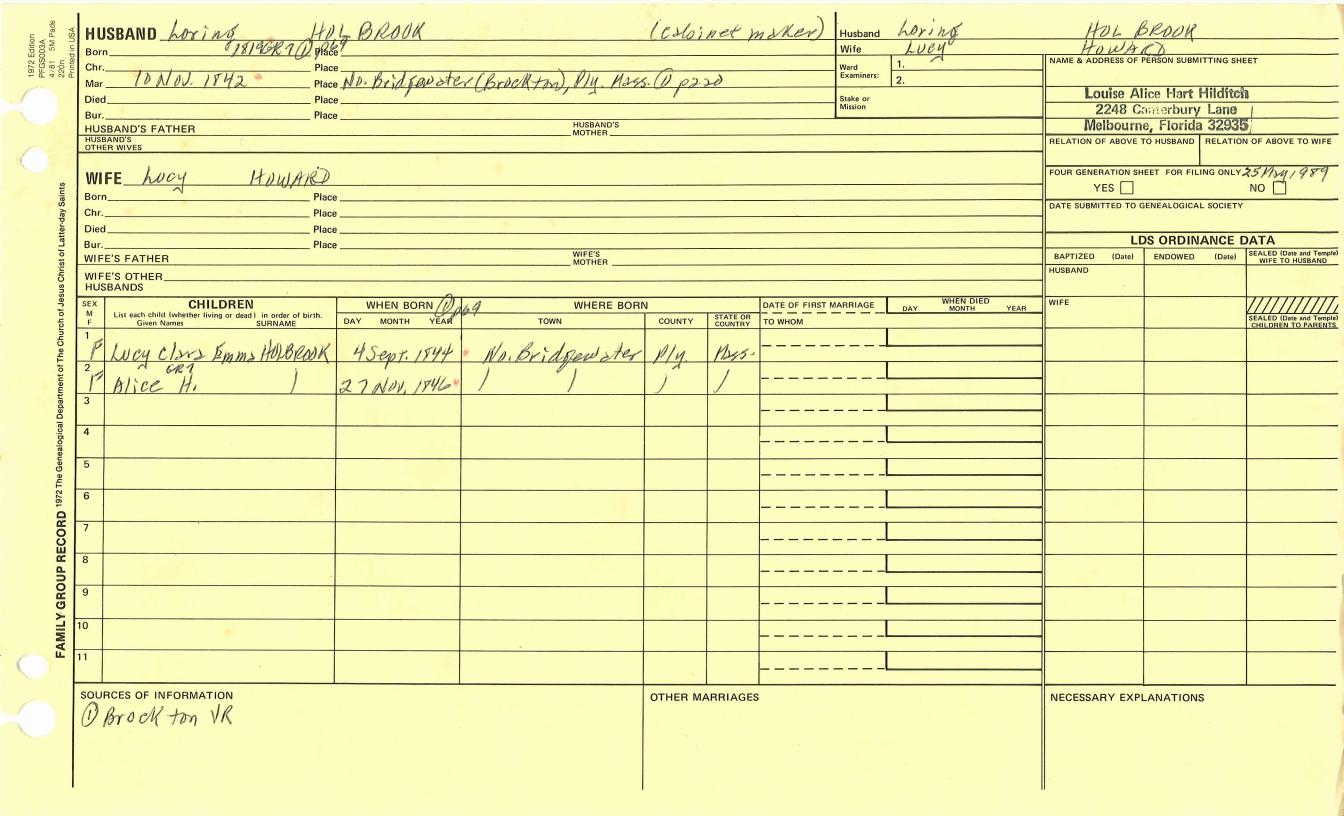 1972 Edition
PFGS003A
4/81 5M Pads
220n
Printed in USA
FAMILY GROUP RECORD 1972 The Genealogical Department of The Church of Jesus Christ of Latter-day Saints
HUSBAND Loring HOLBROOK (cabinet maker)
Born 1819 GR7 ① p69 Place
Chr. Place
Mar 10 Nov. 1842 Place No. Bridgewater (Brockton), Ply. Mass. ① p220
Died Place
Bur. Place
HUSBAND'S FATHER HUSBAND'S MOTHER
HUSBAND'S OTHER WIVES
WIFE Lucy HOWARD
Born Place
Chr. Place
Died Place
Bur. Place
WIFE'S FATHER WIFE'S MOTHER
WIFE'S OTHER HUSBANDS
Husband Loring HOLBROOK
Wife Lucy HOWARD
Ward Examiners: 1.
2.
Stake or Mission
NAME & ADDRESS OF PERSON SUBMITTING SHEET
Louise Alice Hart Hilditch
2248 Canterbury Lane
Melbourne, Florida 32935
RELATION OF ABOVE TO HUSBAND RELATION OF ABOVE TO WIFE
FOUR GENERATION SHEET FOR FILING ONLY 25 May, 1989
YES NO
DATE SUBMITTED TO GENEALOGICAL SOCIETY
LDS ORDINANCE DATA
BAPTIZED (Date) ENDOWED (Date) SEALED (Date and Temple) WIFE TO HUSBAND
HUSBAND
WIFE
SEALED (Date and Temple) CHILDREN TO PARENTS
SEX M F
CHILDREN
List each child (whether living or dead) in order of birth.
Given Names SURNAME
WHEN BORN ① p69
DAY MONTH YEAR
WHERE BORN
TOWN COUNTY STATE OR COUNTRY
DATE OF FIRST MARRIAGE
TO WHOM
WHEN DIED
DAY MONTH YEAR
1 F Lucy Clara Emma HOLBROOK 4 Sept. 1844 No. Bridgewater Ply. Mass.
2 F Alice H. GR7 ) 27 Nov. 1846 ) ) ) )
3
4
5
6
7
8
9
10
11
SOURCES OF INFORMATION
① Brockton VR
OTHER MARRIAGES
NECESSARY EXPLANATIONS